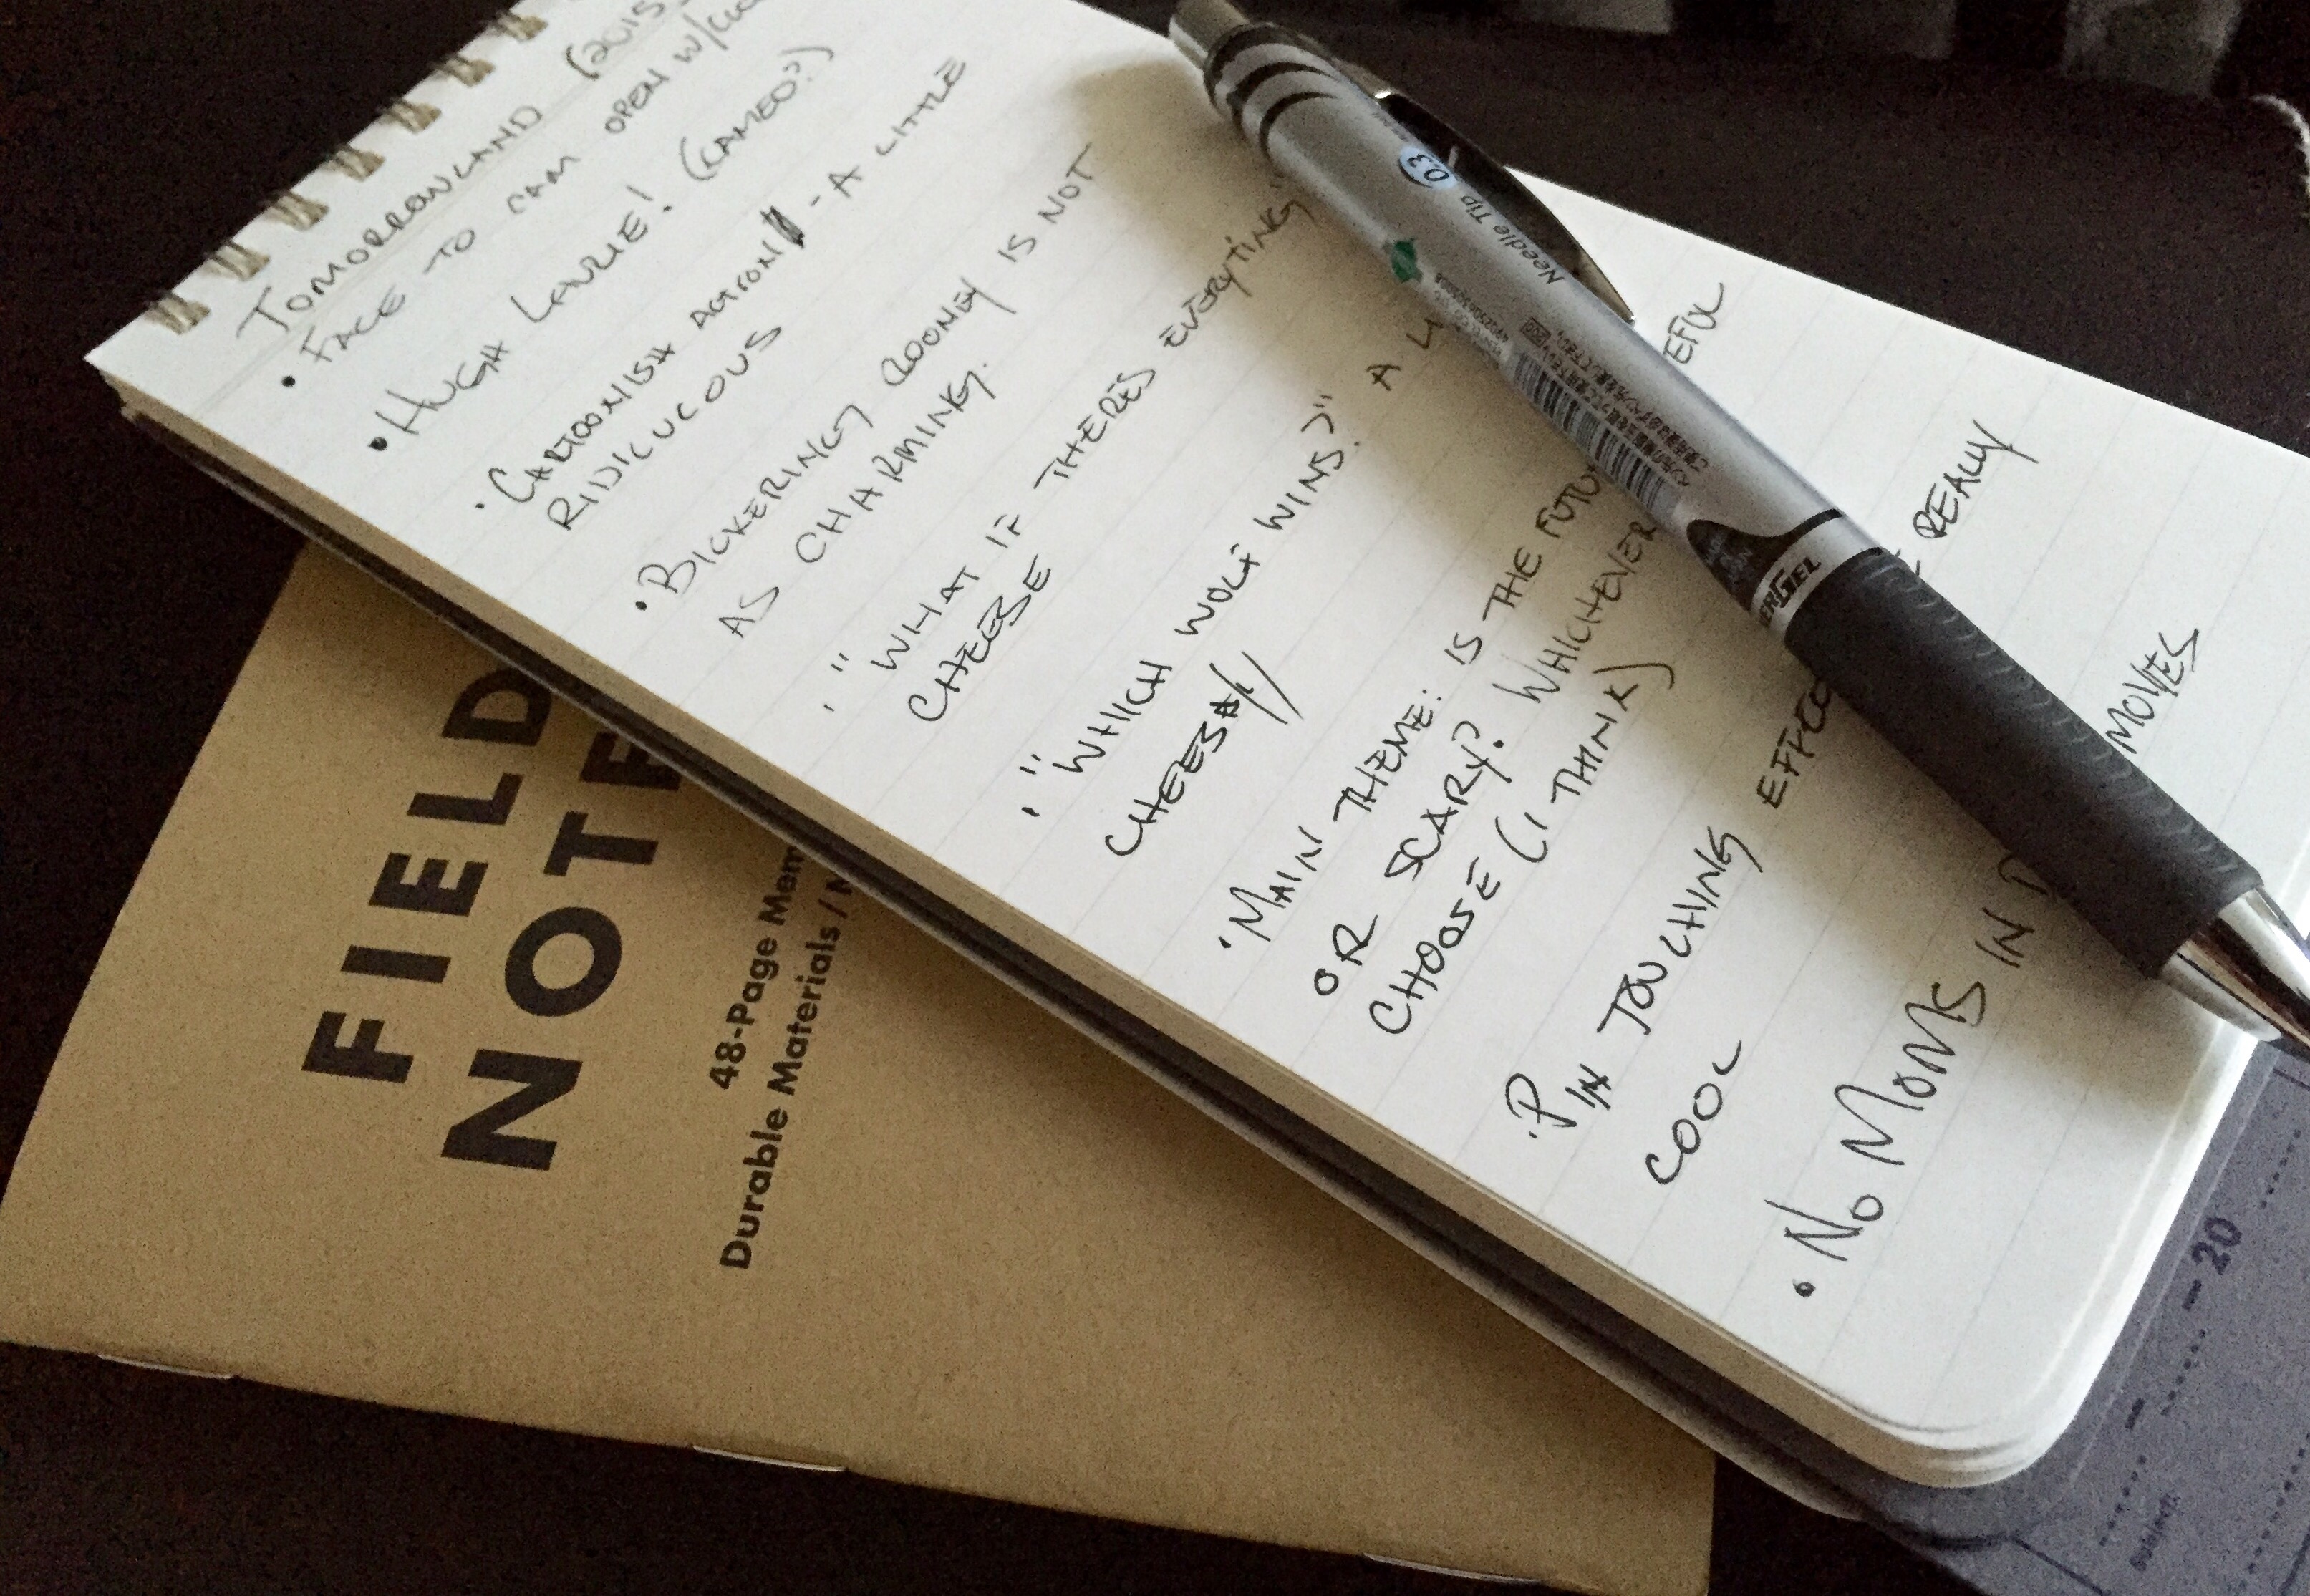 TOMORROWLAND (2015
• FACE TO CAM OPEN W/
• HUGH LAURIE! (CAMEO?)
• CARTOONISH ACTION - A LITTLE
RIDICULOUS
• BICKERING CLOONEY IS NOT
AS CHARMING.
• "WHAT IF THERES EVERYTING"
CHEESE
• "WHICH WOLF WINS?" A
CHEESY
• MAIN THEME: IS THE EFUL
OR SCARY? WHICHEVER
CHOOSE (I THINK)
• PIN TOUCHING REALLY
COOL
• NO MOMS IN MOVIES
0.3
Needle Tip
GEL
FIELD
NOTE
48-Page Mem
Durable Materials /
20